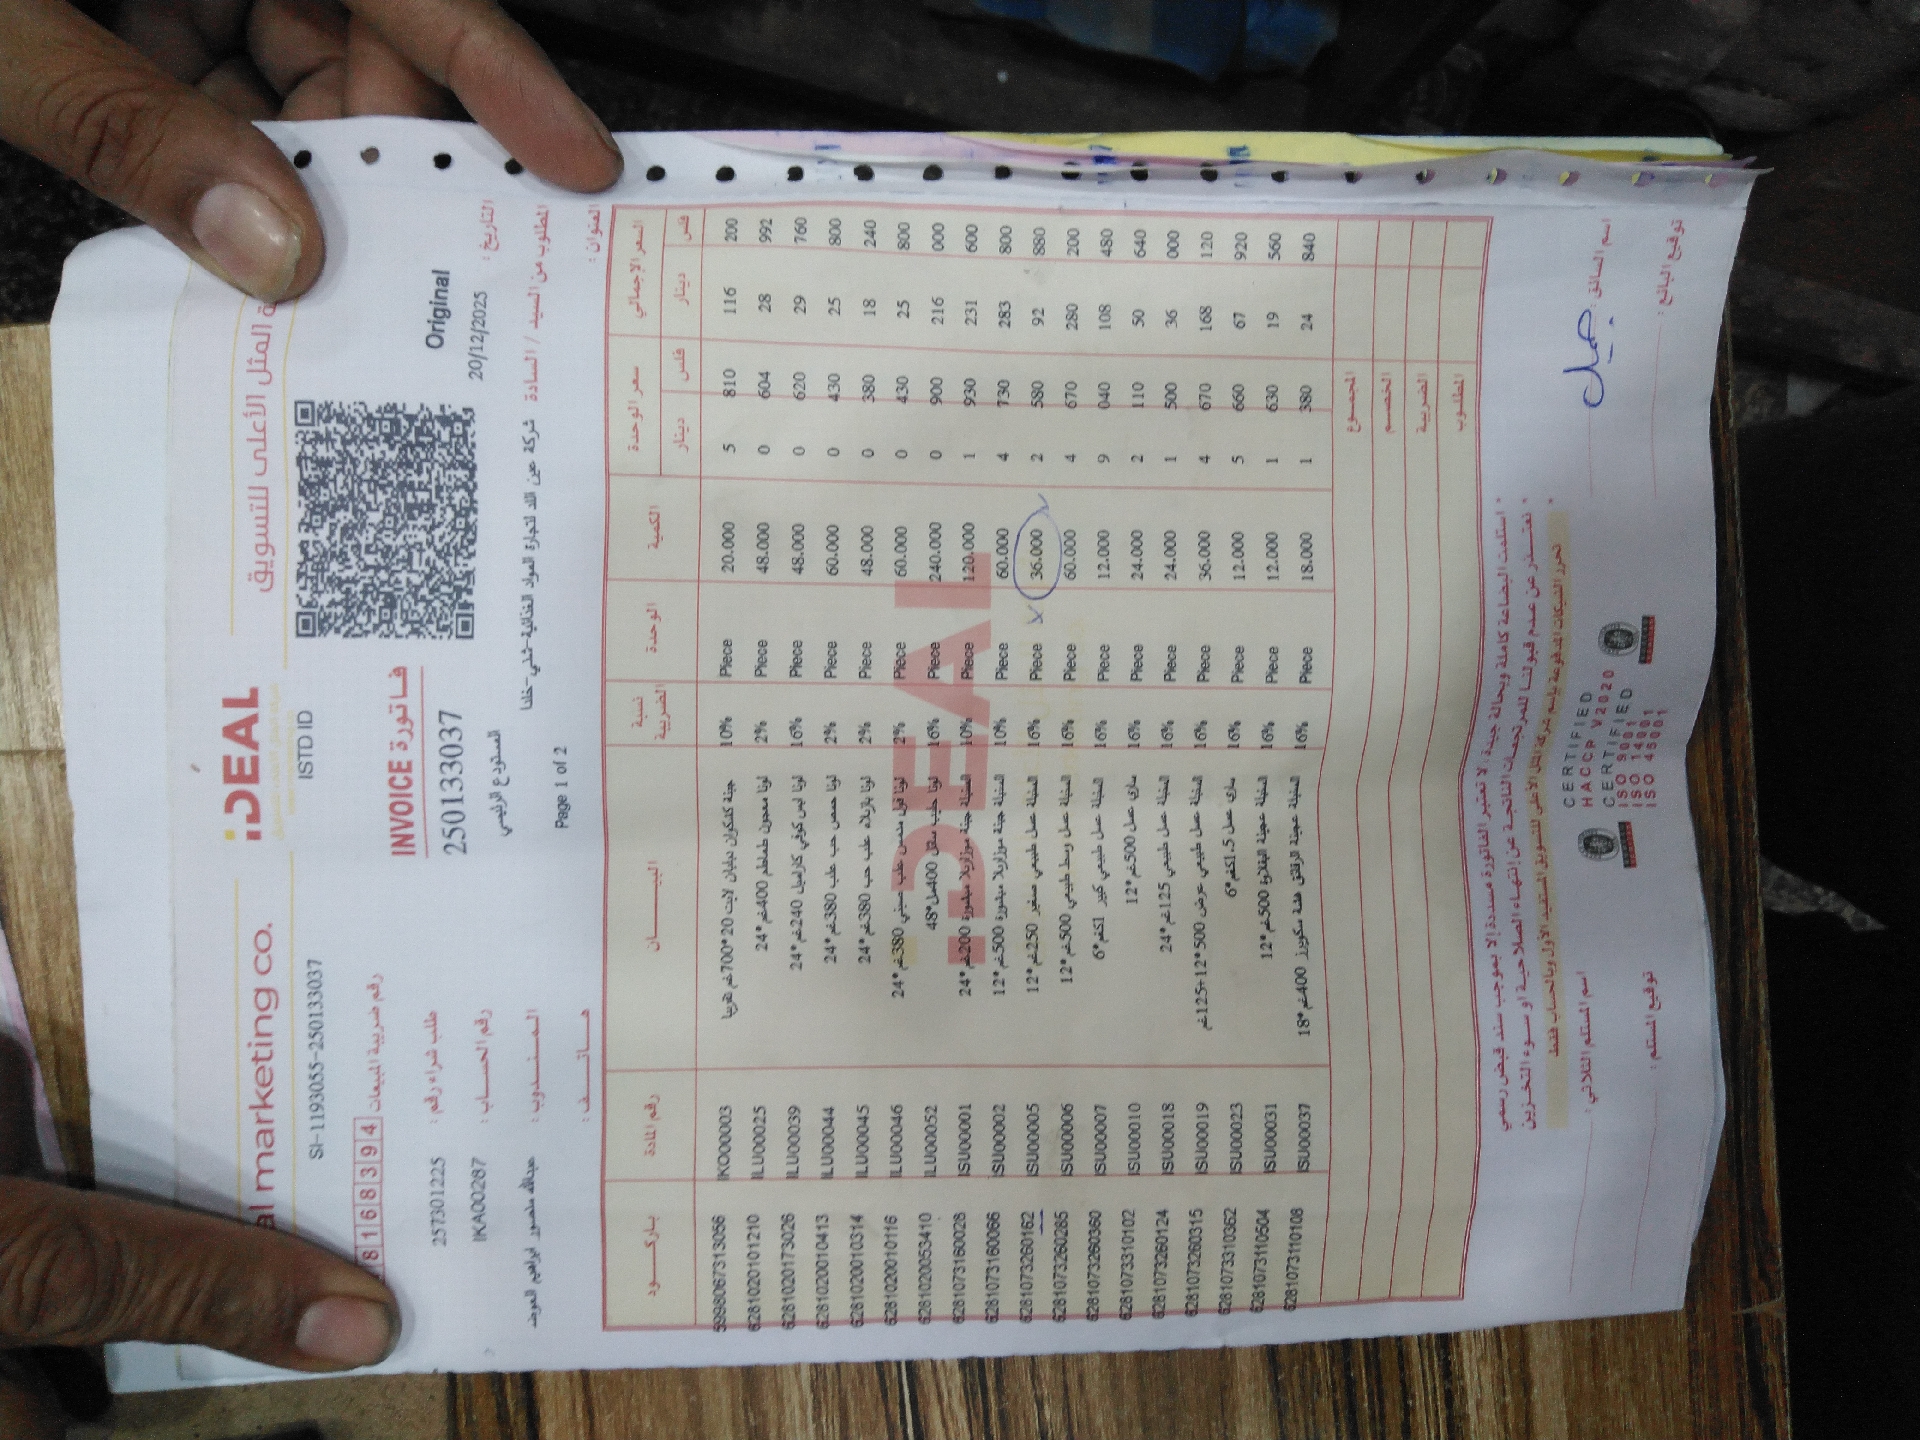 ة المثل الأعلى للتسويق
iDEAL
al marketing co.
ISTD ID
SI-1193055-250133037
8 1 6 8 3 9 4 رقم ضريبة المبيعات
فاتورة INVOICE
250133037
Original
التاريخ : 20/12/2025
طلب شراء رقم : 257301225
رقم الحساب : IKA00287
المستودع الرئيسي
المطلوب من السيد / السادة شركة عين اللد لتجارة المواد الغذائية-شلي-خلدا
المندوب : عبدالله منصور ابراهيم
العنوان :
Page 1 of 2
هاتف :
باركود رقم المادة البيـــان نسبة الضريبة الوحدة الكمية سعر الوحدة السعر الإجمالي
دينار فلس دينار فلس
5998067313056 IKO00003 10% Piece 20.000 5 810 116 200
6281020101210 ILU00025 لونا معجون طماطم 400غم*24 2% Piece 48.000 0 604 28 992
6281020173026 ILU00039 لونا ايس كوفي كاراميل 240غم*24 16% Piece 48.000 0 620 29 760
6281020010413 ILU00044 لونا حمص حب علب 380غم*24 2% Piece 60.000 0 430 25 800
6281020010314 ILU00045 لونا بازيلاء علب حب 380غم*24 2% Piece 48.000 0 380 18 240
6281020010116 ILU00046 لونا فول مدمس علب صيني 380غم*24 2% Piece 60.000 0 430 25 800
6281020053410 ILU00052 لونا حليب سائل 400مل*48 16% Piece 240.000 0 900 216 000
6281073160028 ISU00001 السنبلة جبنة موزاريلا مبشورة 200غم*24 10% Piece 120.000 1 930 231 600
6281073160066 ISU00002 السنبلة جبنة موزاريلا مبشورة 500غم*12 10% Piece 60.000 4 730 283 800
6281073260162 ISU00005 السنبلة عسل طبيعي صغير 250غم*12 16% Piece 36.000 2 580 92 880
6281073260285 ISU00006 السنبلة عسل وسط طبيعي 500غم*12 16% Piece 60.000 4 670 280 200
6281073260360 ISU00007 السنبلة عسل طبيعي كبير 1كغم*6 16% Piece 12.000 9 040 108 480
6281073310102 ISU00010 سارى عسل 500غم*12 16% Piece 24.000 2 110 50 640
6281073260124 ISU00018 السنبلة عسل طبيعي 125غم*24 16% Piece 24.000 1 500 36 000
6281073260315 ISU00019 السنبلة عسل طبيعي عرض 500*12+125غم 16% Piece 36.000 4 670 168 120
6281073310362 ISU00023 سارى عسل 1.5كغم*6 16% Piece 12.000 5 660 67 920
6281073110504 ISU00031 السنبلة عجينة البقلاوة 500غم*12 16% Piece 12.000 1 630 19 560
6281073110108 ISU00037 السنبلة عجينة الرقائق هشة سكويرز 400غم*18 16% Piece 18.000 1 380 24 840
المجموع
الخصم
الضريبة
المطلوب
* استلمت البضاعة كاملة وبحالة جيدة ، لا تعتبر الفاتورة مسددة إلا بموجب سند قبض رسمي
* نعتذر عن عدم قبولنا للمرتجعات الناتجة عن إنتهاء الصلاحية او سوء التخزين
* تحرر الشيكات المدفوعة بإسم شركة المثل الأعلى للتسويق المستفيد الأول وبالحساب فقط
اسم المستلم الثلاثي :
اسم السائق : جميل
توقيع المستلم :
توقيع البائع :
CERTIFIED
HACCP V2020
CERTIFIED
ISO 9001
ISO 14001
ISO 45001